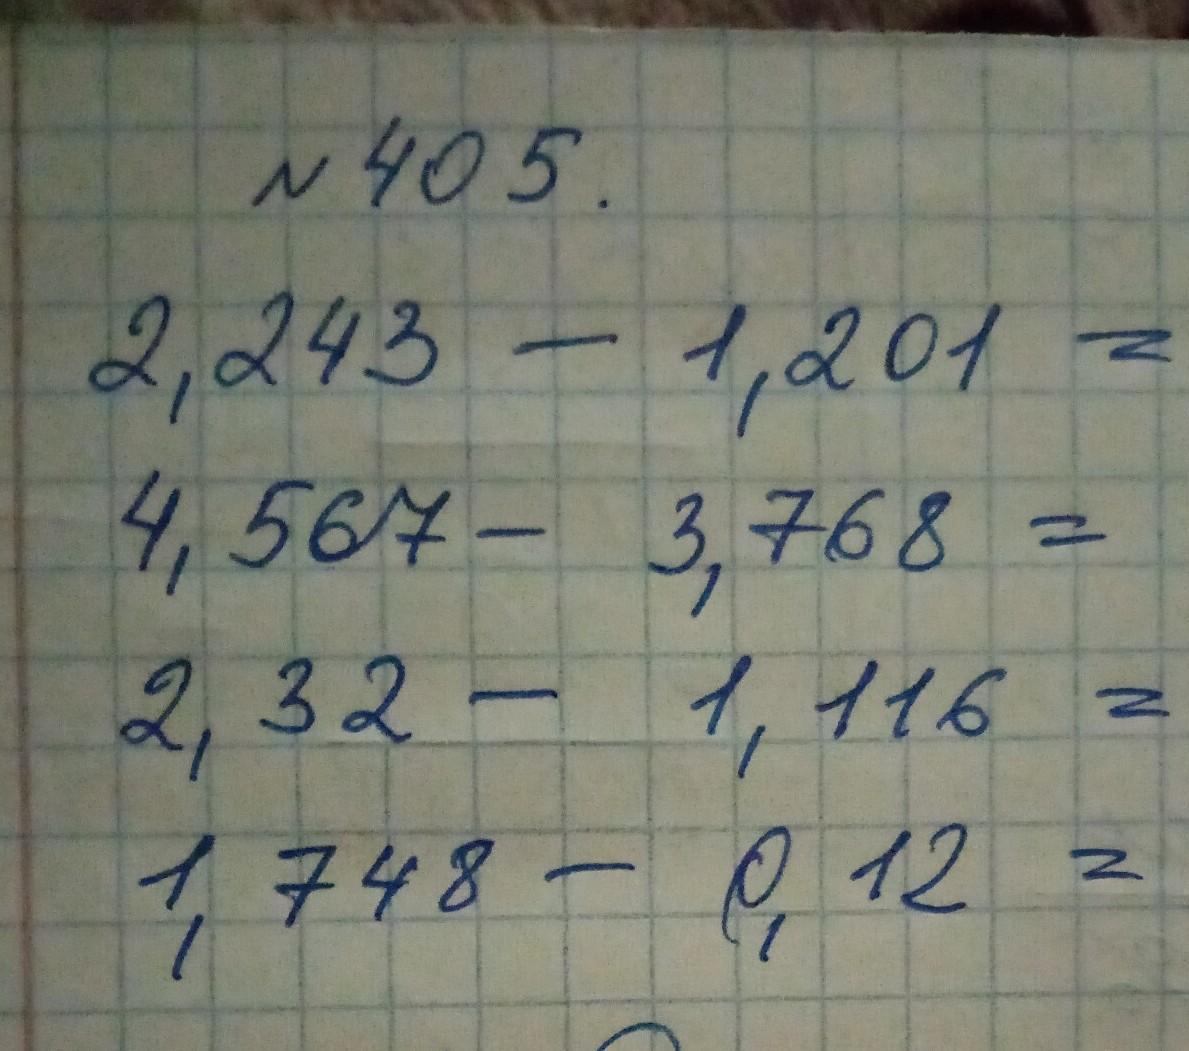 № 405.
2,243 - 1,201 =
4,567 - 3,768 =
2,32 - 1,116 =
1,748 - 0,12 =